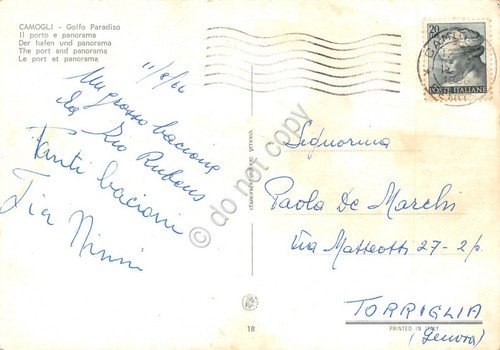 CAMOGLI - Golfo Paradiso
Il porto e panorama
Der hafen und panorama
The port and panorama
Le port et panorama
11/8/66
Un grosso bacione
da Zio Rubens
Tanti bacioni
Zia Ninni
do not copy
20
POSTE ITALIANE
CAMOGLI
Signorina
Paola De Marchi
Via Matteotti 27-2/p.
TORRIGLIA
(Genova)
18
PRINTED IN ITALY